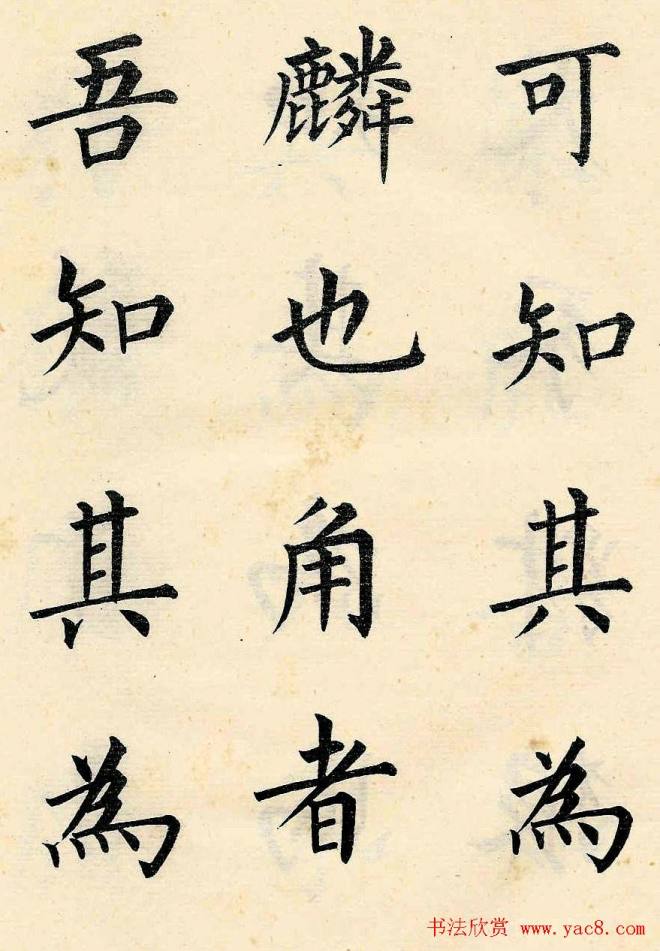 可知其為
麟也角者
吾知其為
书法欣赏 www.yac8.com